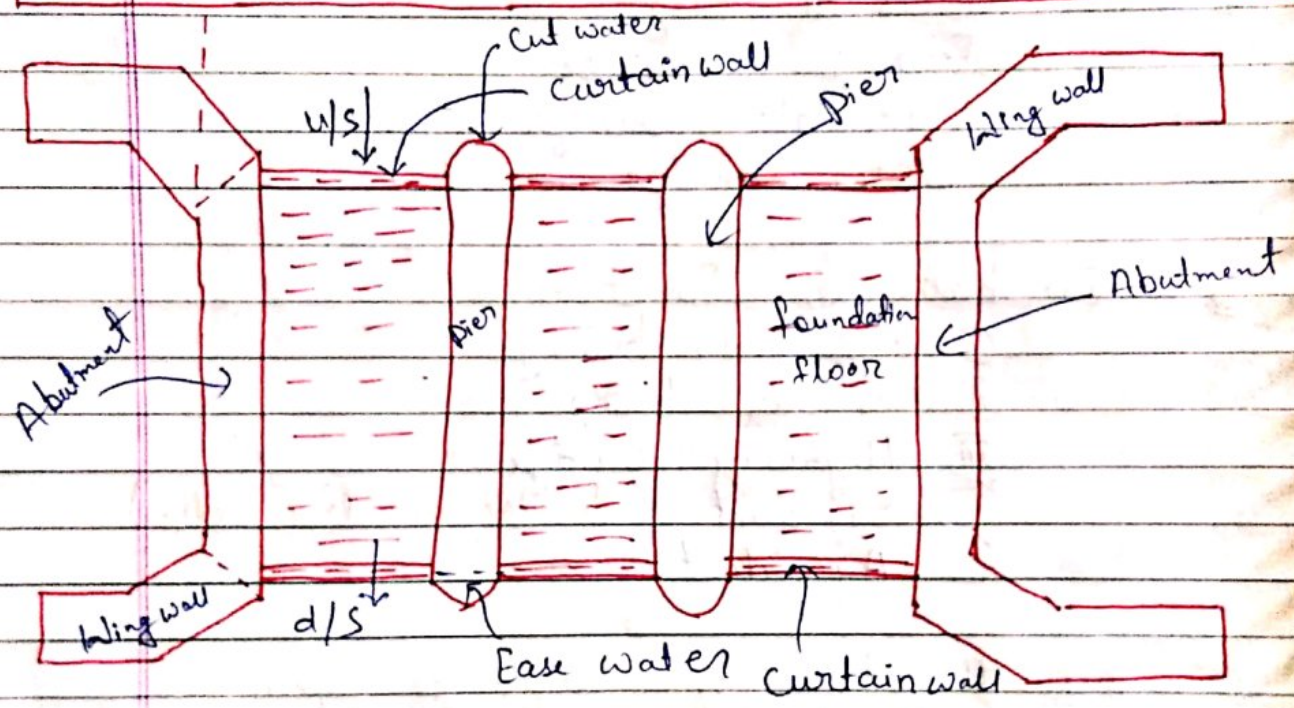 Cut water
Curtain wall
u/s
Pier
Wing wall
Abutment
Pier
foundation
floor
Abutment
Wing wall
d/s
Ease water
Curtain wall